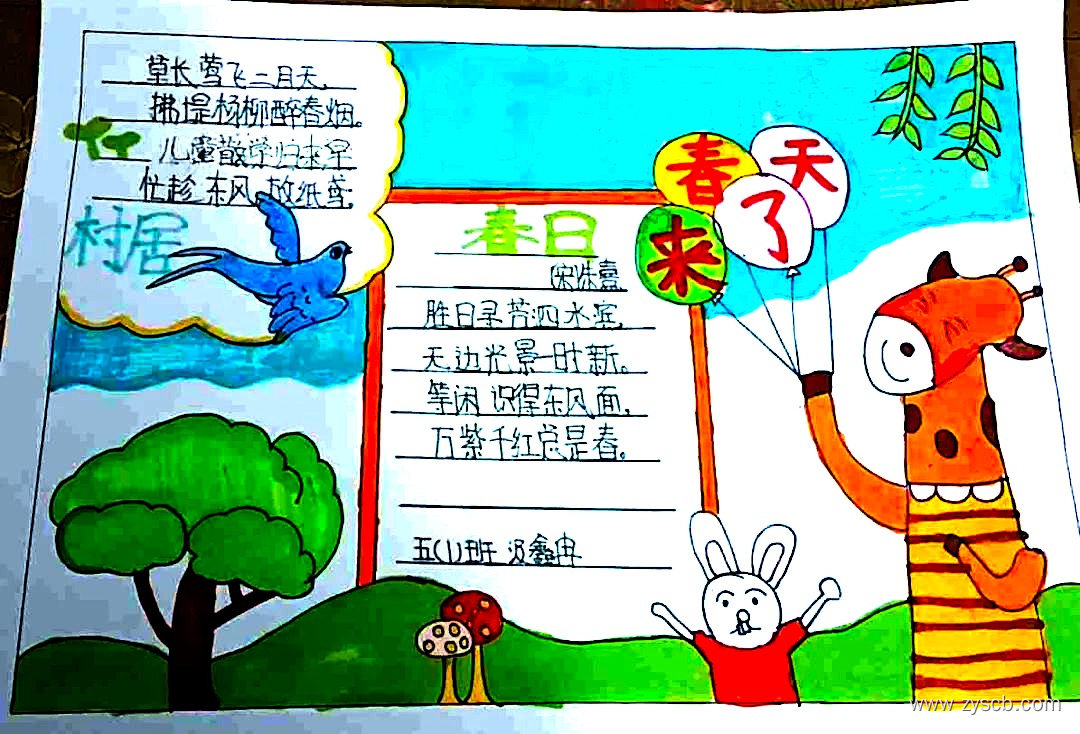 草长莺飞二月天,
拂堤杨柳醉春烟。
儿童散学归来早
忙趁东风放纸鸢;
村居
春天来了
春日
宋朱熹
胜日寻芳泗水滨,
无边光景一时新。
等闲识得东风面,
万紫千红总是春。
五(1)班 汲鑫冉
www.zyscb.com